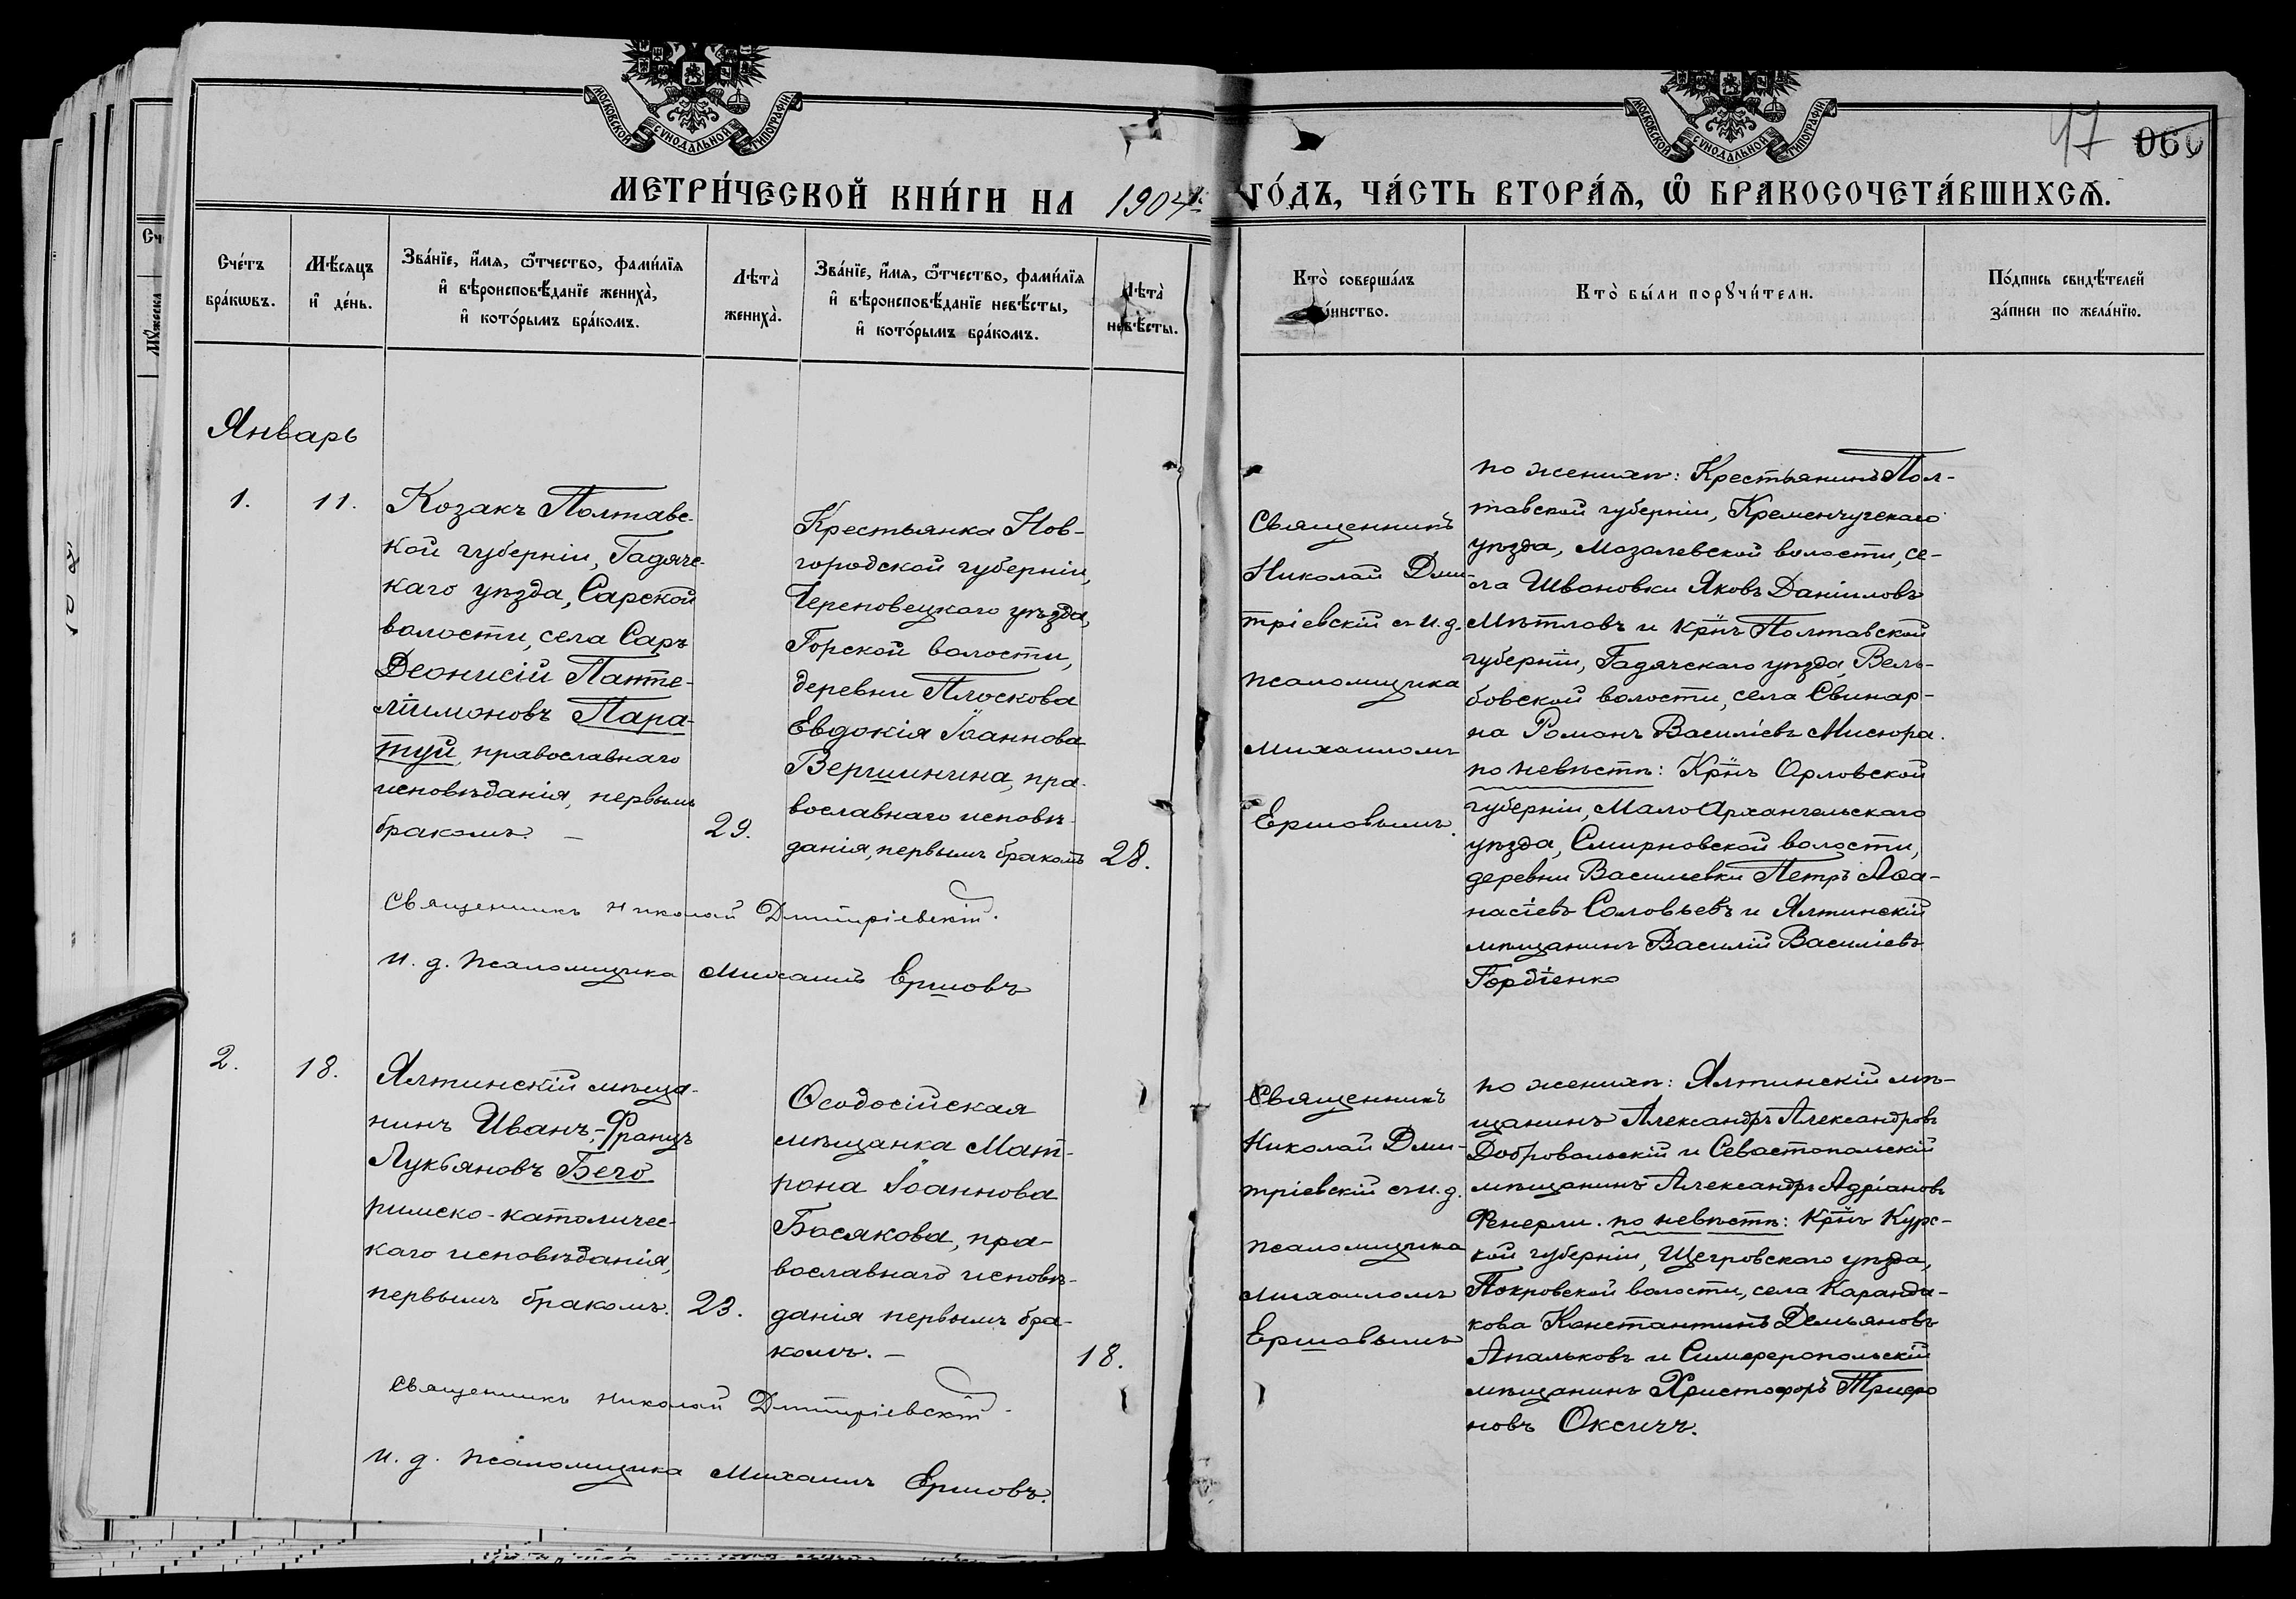 МОСКОВСКОЙ СѴНОДАЛЬНОЙ ТИПОГРАФІИ
МОСКОВСКОЙ СѴНОДАЛЬНОЙ ТИПОГРАФІИ
47 060
МЕТРИ́ЧЕСКОЙ КНИ́ГИ НА 1904 ГО́ДЪ, ЧА́СТЬ ВТОРА́Я, Ѡ҆ БРАКОСОЧЕТА́ВШИХСѦ.
Сче́тъ
бра́кѡвъ.
Мѣ́сяцъ
и҆ де́нь.
Зва́нїе, и҆́мя, ѻ҆́тчество, фами́лїя
и҆ вѣроисповѣ́данїе жениха̀,
и҆ кото́рымъ бра́комъ.
Лѣта̀
жениха̀.
Зва́нїе, и҆́мя, ѻ҆́тчество, фами́лїя
и҆ вѣроисповѣ́данїе невѣ́сты,
и҆ кото́рымъ бра́комъ.
Лѣта̀
невѣ́сты.
Кто̀ соверша́лъ
та́инство.
Кто̀ бы́ли порꙋчи́тели.
По́дпись свидѣ́телей
за́писи по жела́нїю.
Январь
1.
11.
Козакъ Полтавс-
кой губерніи, Гадячс-
каго уѣзда, Сарской
волости, села Саръ
Деонисій Панте-
лїимоновъ Пара-
туй, православнаго
исповѣданія, первымъ
бракомъ. —
29.
Крестьянка Нов-
городской губерніи,
Череповецкаго уѣзда,
Горской волости,
деревни Плоскова
Евдокія Іоаннова
Вершинина, пра-
вославнаго исповѣ-
данія, первымъ бракомъ
28.
Священникъ Николай Дмитріевскій.
и. д. псаломщика Михаилъ Ершовъ
Священникъ
Николай Дми-
тріевскій съ и. д.
псаломщика
Михаиломъ
Ершовымъ.
по женихѣ: Крестьянинъ Пол-
тавской губерніи, Кременчугскаго
уѣзда, Мозолевской волости, се-
ла Ивановки Яковъ Даніиловъ
Мѣтловъ и кр̃нъ Полтавской
губерніи, Гадячскаго уѣзда, Вель-
бовской волости, села Свинар-
на Романъ Василіевъ Мисюра.
по невѣстѣ: Кр̃нъ Орловской
губерніи, МалоАрхангельскаго
уѣзда, Смирновской волости,
деревни Василевки Петръ Аѳа-
насіевъ Соловьевъ и Ялтинскій
мѣщанинъ Василій Василіевъ
Гордіенко
2.
18.
Ялтинскій мѣща-
нинъ Иванъ-Францъ
Лукьяновъ Бечо
римско-католичес-
каго исповѣданія,
первымъ бракомъ.
23.
Ѳеодосійская
мѣщанка Мат-
рона Іоаннова
Босякова, пра-
вославнаго исповѣ-
данія первымъ бра-
комъ. —
18.
Священникъ Николай Дмитріевскій.
и. д. псаломщика Михаилъ Ершовъ.
Священникъ
Николай Дми-
тріевскій съ и. д.
псаломщика
Михаиломъ
Ершовымъ
по женихѣ: Ялтинскій мѣ-
щанинъ Александръ Александровъ
Добровольскій и Севастопольскій
мѣщанинъ Александръ Адріановъ
Фенерли. по невѣстѣ: кр̃нъ Курс-
кой губерніи, Щегровскаго уѣзда,
Покровской волости, села Каранда-
кова Константинъ Демьяновъ
Апальковъ и Симферопольскій
мѣщанинъ Христофоръ Трифо
новъ Оксичъ.